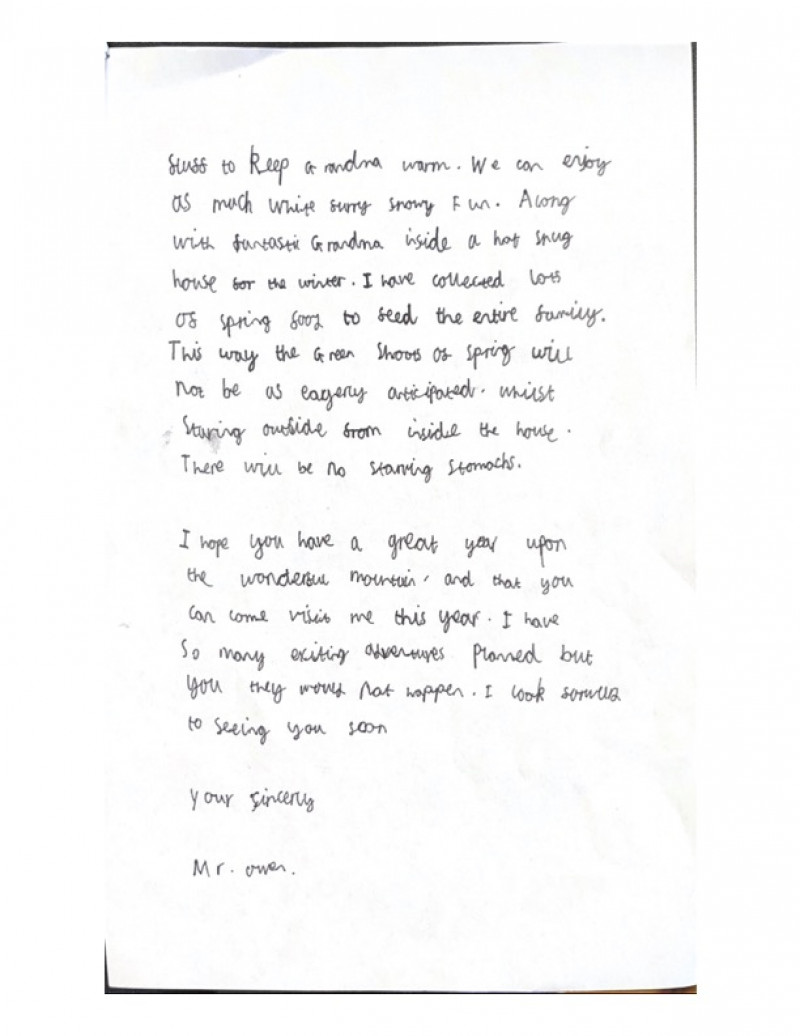 stuff to keep Grandma warm. We can enjoy
as much white furry snowy Fun. Along
with fantastic Grandma inside a hot snug
house for the winter. I have collected lots
of spring food to feed the entire family.
This way the Green Shoots of spring will
not be as eagerly anticipated. whilst
Staring outside from inside the house.
There will be no starving stomachs.
I hope you have a great year upon
the wonderful mountain, and that you
can come visit me this year. I have
So many exiting adventures planned but
you they would not happen. I look forward
to seeing you soon
your sincerly
Mr. owen.